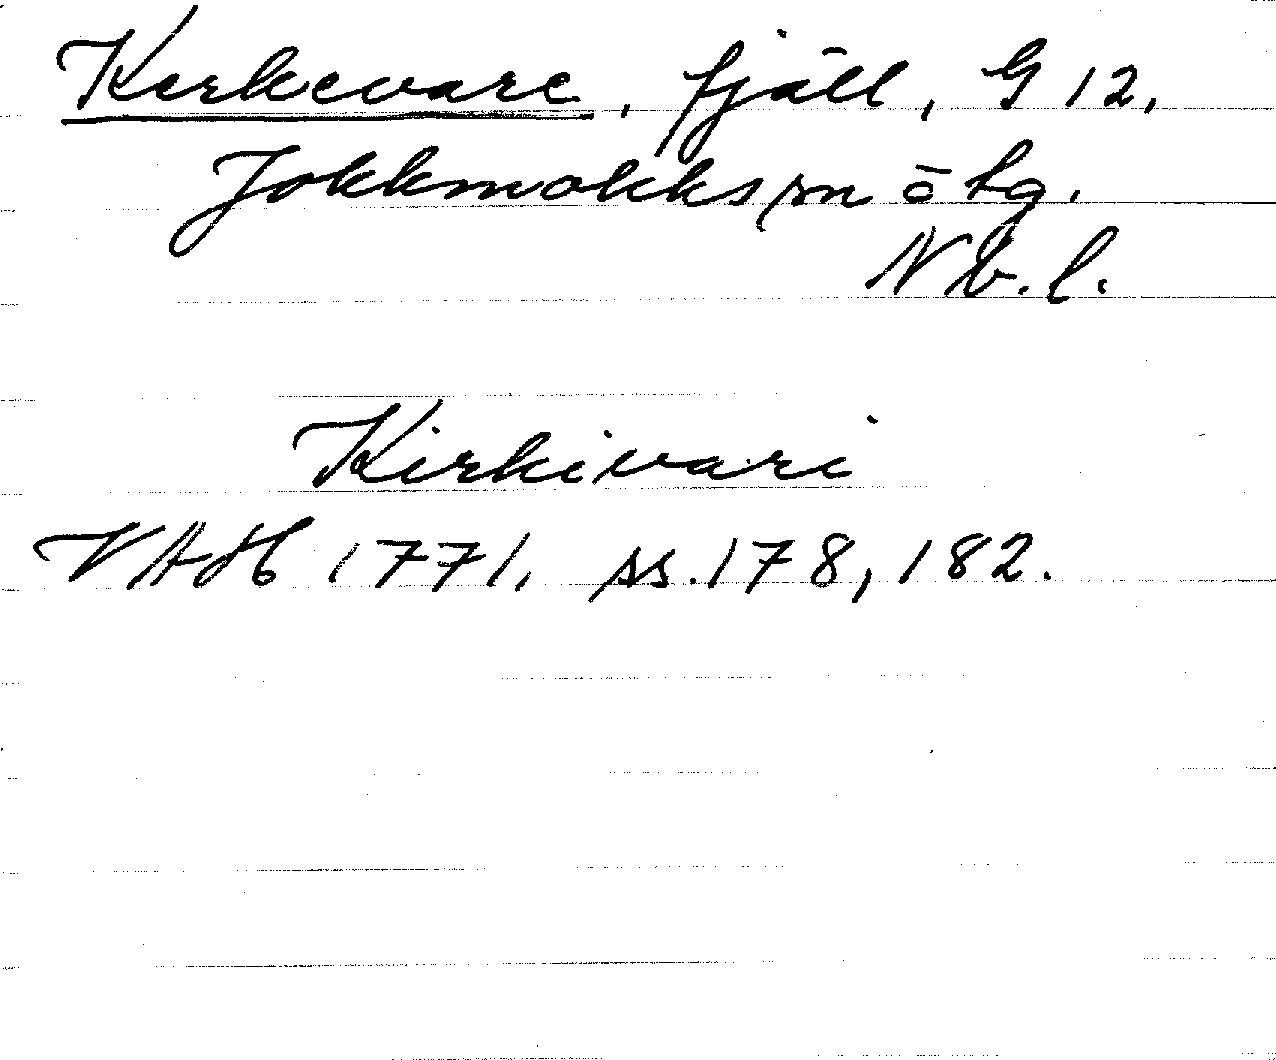 Kerkevare, fjäll, G 12,
Jokkmokks sn ö tg.
Nb. l.
Kirkivari
VAH 1771, ss. 178, 182.